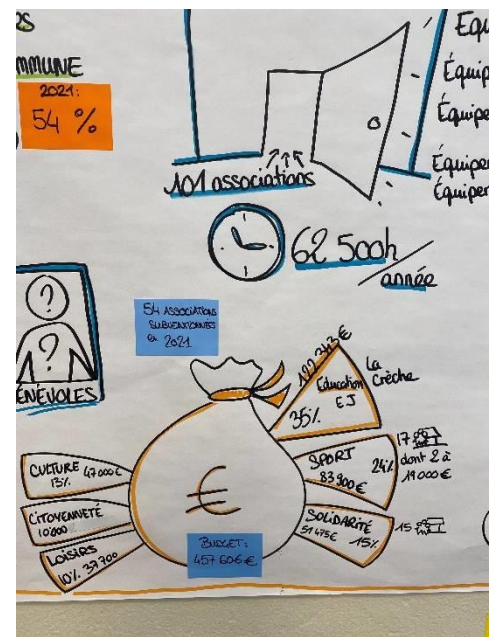 MMUNE
2021:
54 %
Équipe
Équipe
Équiper
Équiper
101 associations
62 500h
/ année
54 ASSOCIATIONS
SUBVENTIONNÉES
en 2021
?
?
ÉNÉVOLES
€
Education
EJ
35%
La
Crèche
SPORT
83 900 €
24%
17
dont 2 à
19 000 €
SOLIDARITÉ
51 475 €
15%
15
CULTURE 47 000 €
13%
CITOYENNETÉ
10 000
LOISIRS
10% 37 700
€
BUDGET:
457 606 €